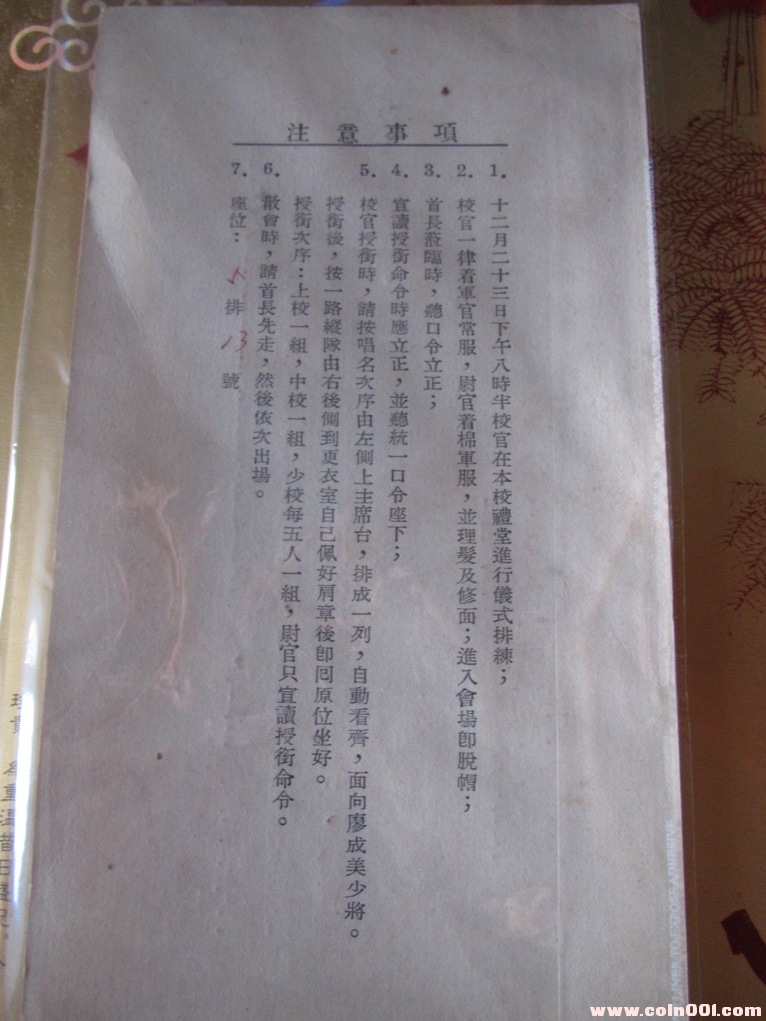 注意事項
1. 十二月二十三日下午八時半校官在本校禮堂進行儀式排練；
2. 校官一律着軍官常服，尉官着棉軍服，並理髮及修面；進入會場卽脫帽；
3. 首長蒞臨時，聽口令立正；
4. 宣讀授銜命令時應立正，並聽統一口令座下；
5. 校官授銜時，請按唱名次序由左側上主席台，排成一列，自動看齊，面向廖成美少將。
授銜後，按一路縱隊由右後側到更衣室自己佩好肩章後卽囘原位坐好。
授銜次序：上校一組，中校一組，少校每五人一組，尉官只宣讀授銜命令。
6. 散會時，請首長先走，然後依次出場。
7. 座位： 排 13 號
www.coin001.com